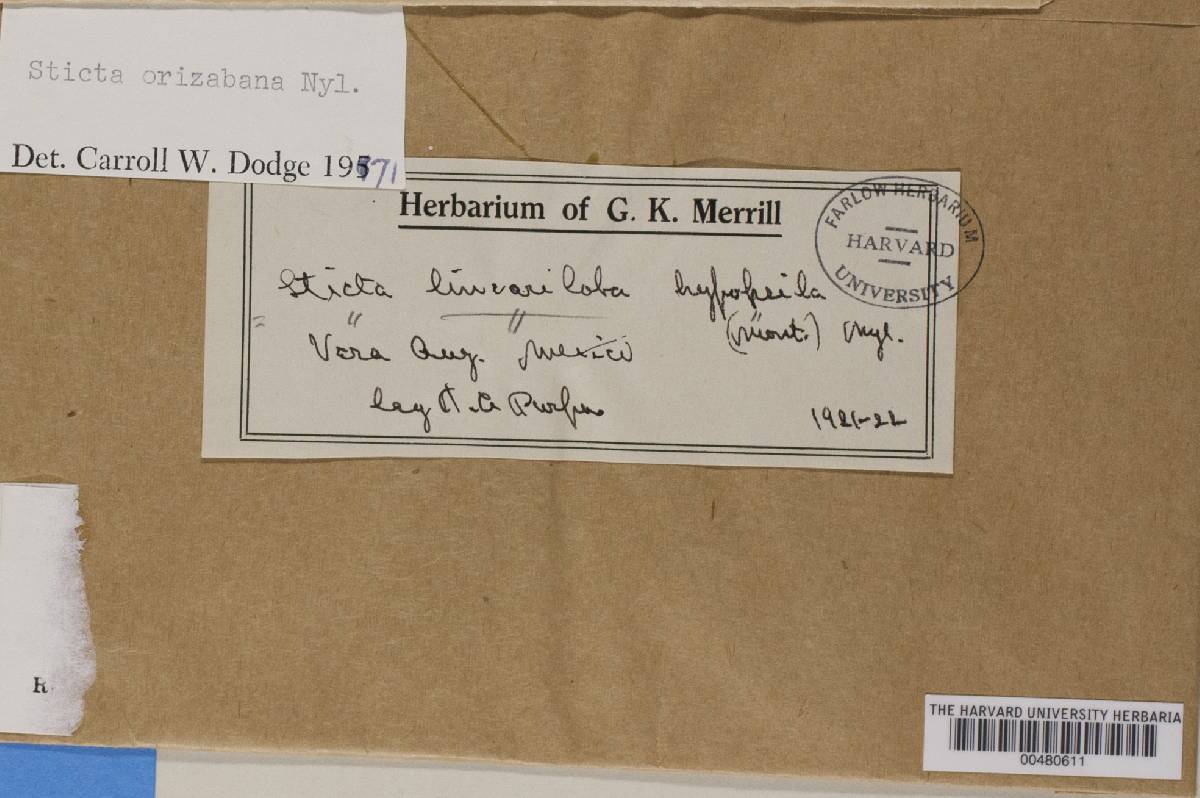 Sticta orizabana Nyl.
Det. Carroll W. Dodge 1971
Herbarium of G. K. Merrill
FARLOW HERBARIUM
HARVARD
UNIVERSITY
Sticta lineariloba hypopsila
= " " (Mont.) Nyl.
Vera Cruz. Mexico
leg A. Purpus
1921-22
R.
THE HARVARD UNIVERSITY HERBARIA
00480611